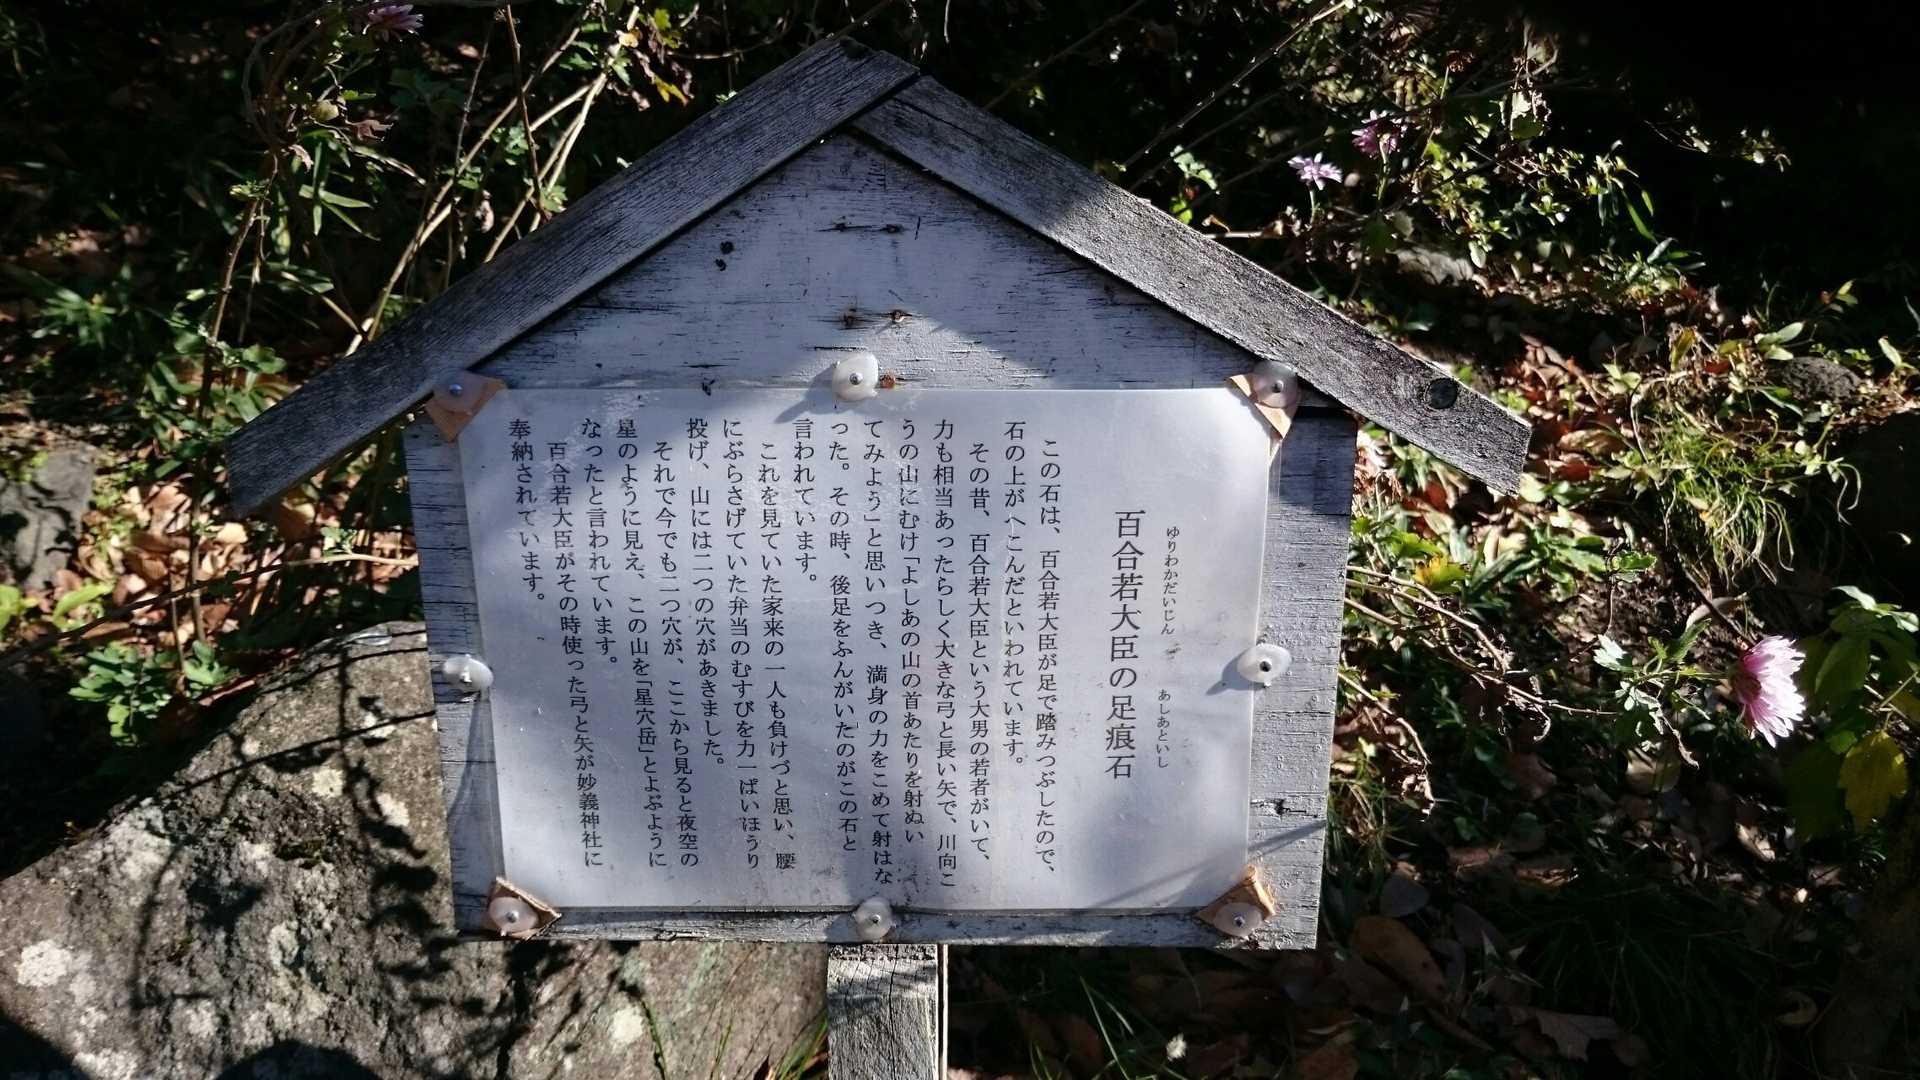 ゆりわかだいじん　の　あしあといし
百合若大臣の足痕石
この石は、百合若大臣が足で踏みつぶしたので、
石の上がへこんだといわれています。
その昔、百合若大臣という大男の若者がいて、
力も相当あったらしく大きな弓と長い矢で、川向こ
うの山にむけ「よしあの山の首あたりを射ぬい
てみよう」と思いつき、満身の力をこめて射はな
った。その時、後足をふんがいたのがこの石と
言われています。
これを見ていた家来の一人も負けづと思い、腰
にぶらさげていた弁当のむすびを力一ぱいほうり
投げ、山には二つの穴があきました。
それで今でも二つ穴が、ここから見ると夜空の
星のように見え、この山を「星穴岳」とよぶように
なったと言われています。
百合若大臣がその時使った弓と矢が妙義神社に
奉納されています。